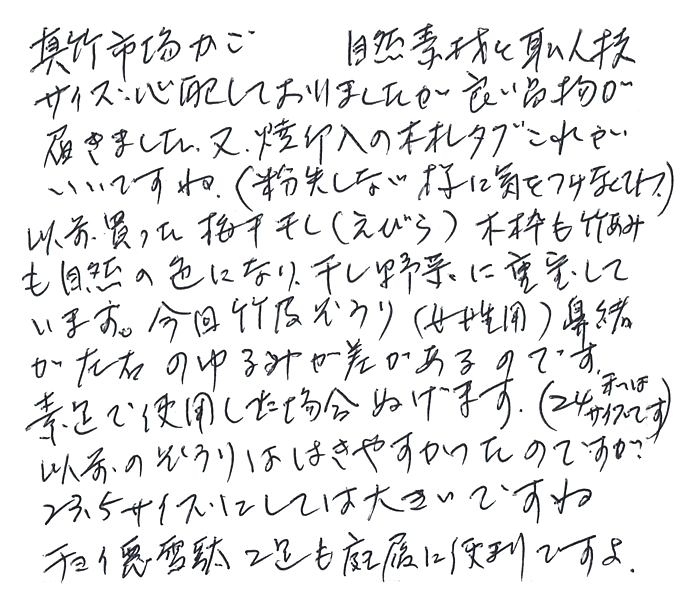 真竹市場かご　　自然素材と職人技
サイズ心配しておりましたが良い品物が
届きました、又、焼印入の木札タグこれがいいですね。
いいですね。（粉失しない様に気をつけなくては？）
以前、買った梅干干し（えびら）木枠も竹あみ
も自然の色になり、干し野菜、に重宝して
います。今回竹皮ぞうり（女性用）鼻緒
が左右のゆるみが差があるのです。
素足で使用した場合ぬげます。（24 私はサイズです）
以前、のぞうりははきやすかったのですが？
23.5サイズにしては大きいですね
チョイ悪雪駄2足も庭履に便利ですよ。